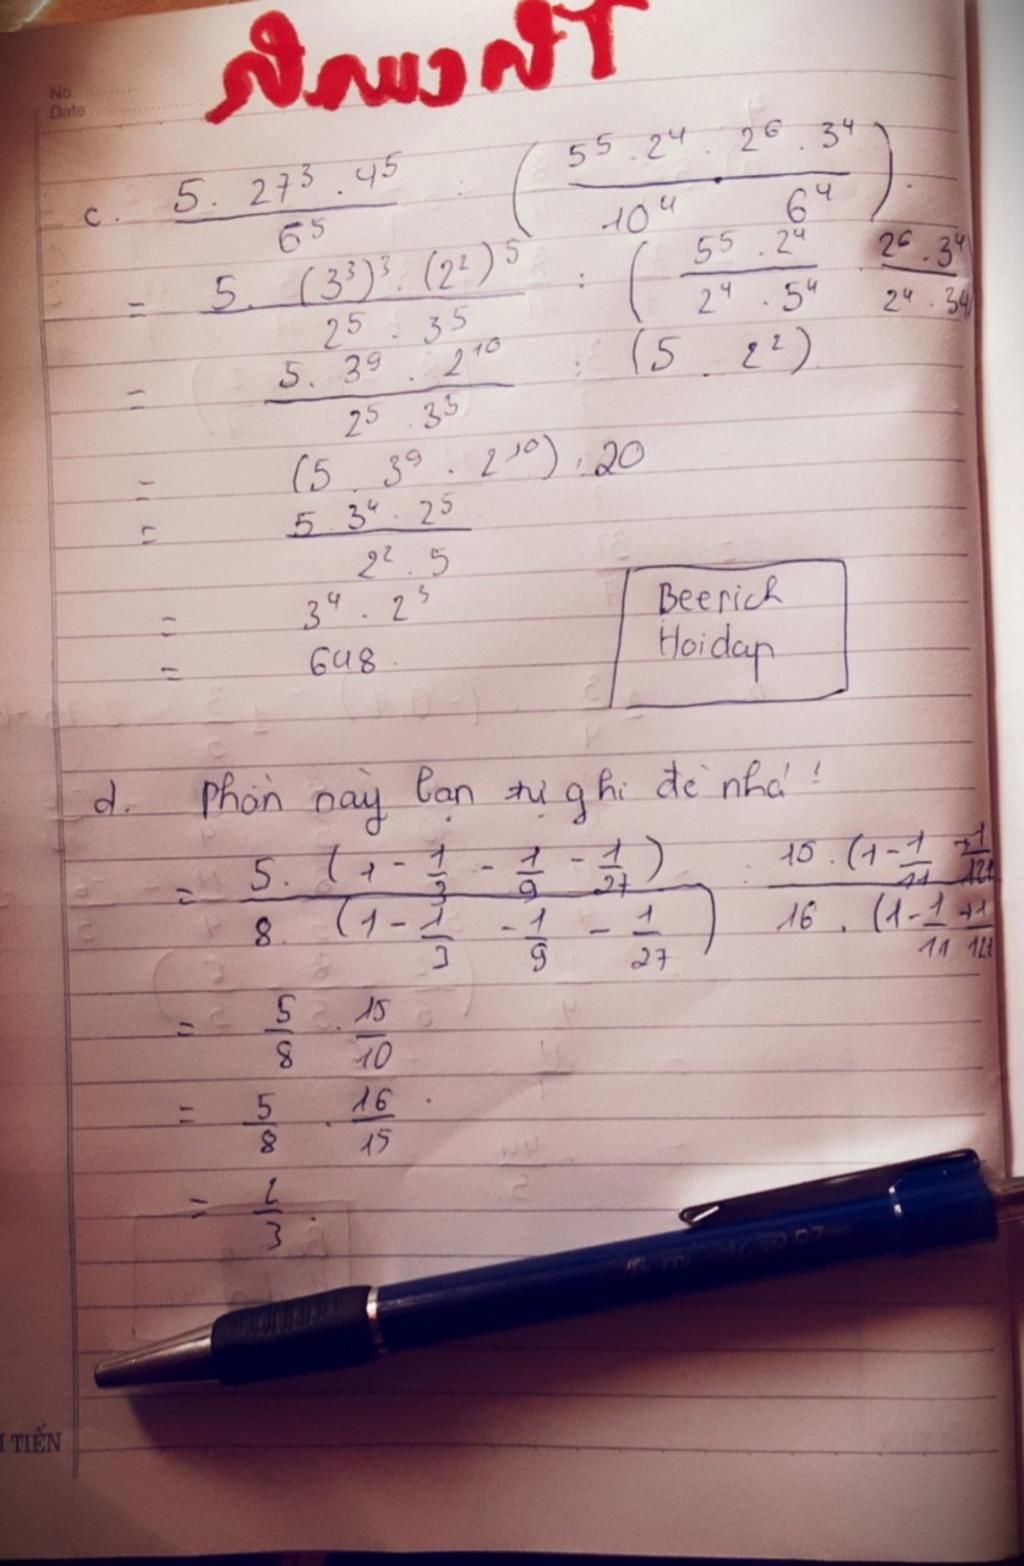 No
Date
c. 5 . 27³ . 4⁵ / 6⁵ : ( 5⁵ . 2⁴ . 2⁶ . 3⁴ / 10⁴ . 6⁴ ) .
= 5 . (3³)³ . (2²)⁵ / 2⁵ . 3⁵ : ( 5⁵ . 2⁴ / 2⁴ . 5⁴ . 2⁶ . 3⁴ / 2⁴ . 3⁴ )
= 5 . 3⁹ . 2¹⁰ / 2⁵ . 3⁵ : (5 . 2²)
= (5 . 3⁹ . 2¹⁰) : 20
= 5 . 3⁴ . 2⁵ / 2² . 5
= 3⁴ . 2³
= 648
Beerich
Hoidap
d. Phần này bạn tự ghi đề nhá !
= 5 . (1 - 1/3 - 1/9 - 1/27) / 8 (1 - 1/3 - 1/9 - 1/27) : 15 . (1 - 1/11 + 1/121) / 16 . (1 - 1/11 + 1/121)
= 5/8 : 15/10
= 5/8 . 16/15 .
= 2/3 .
TIẾN